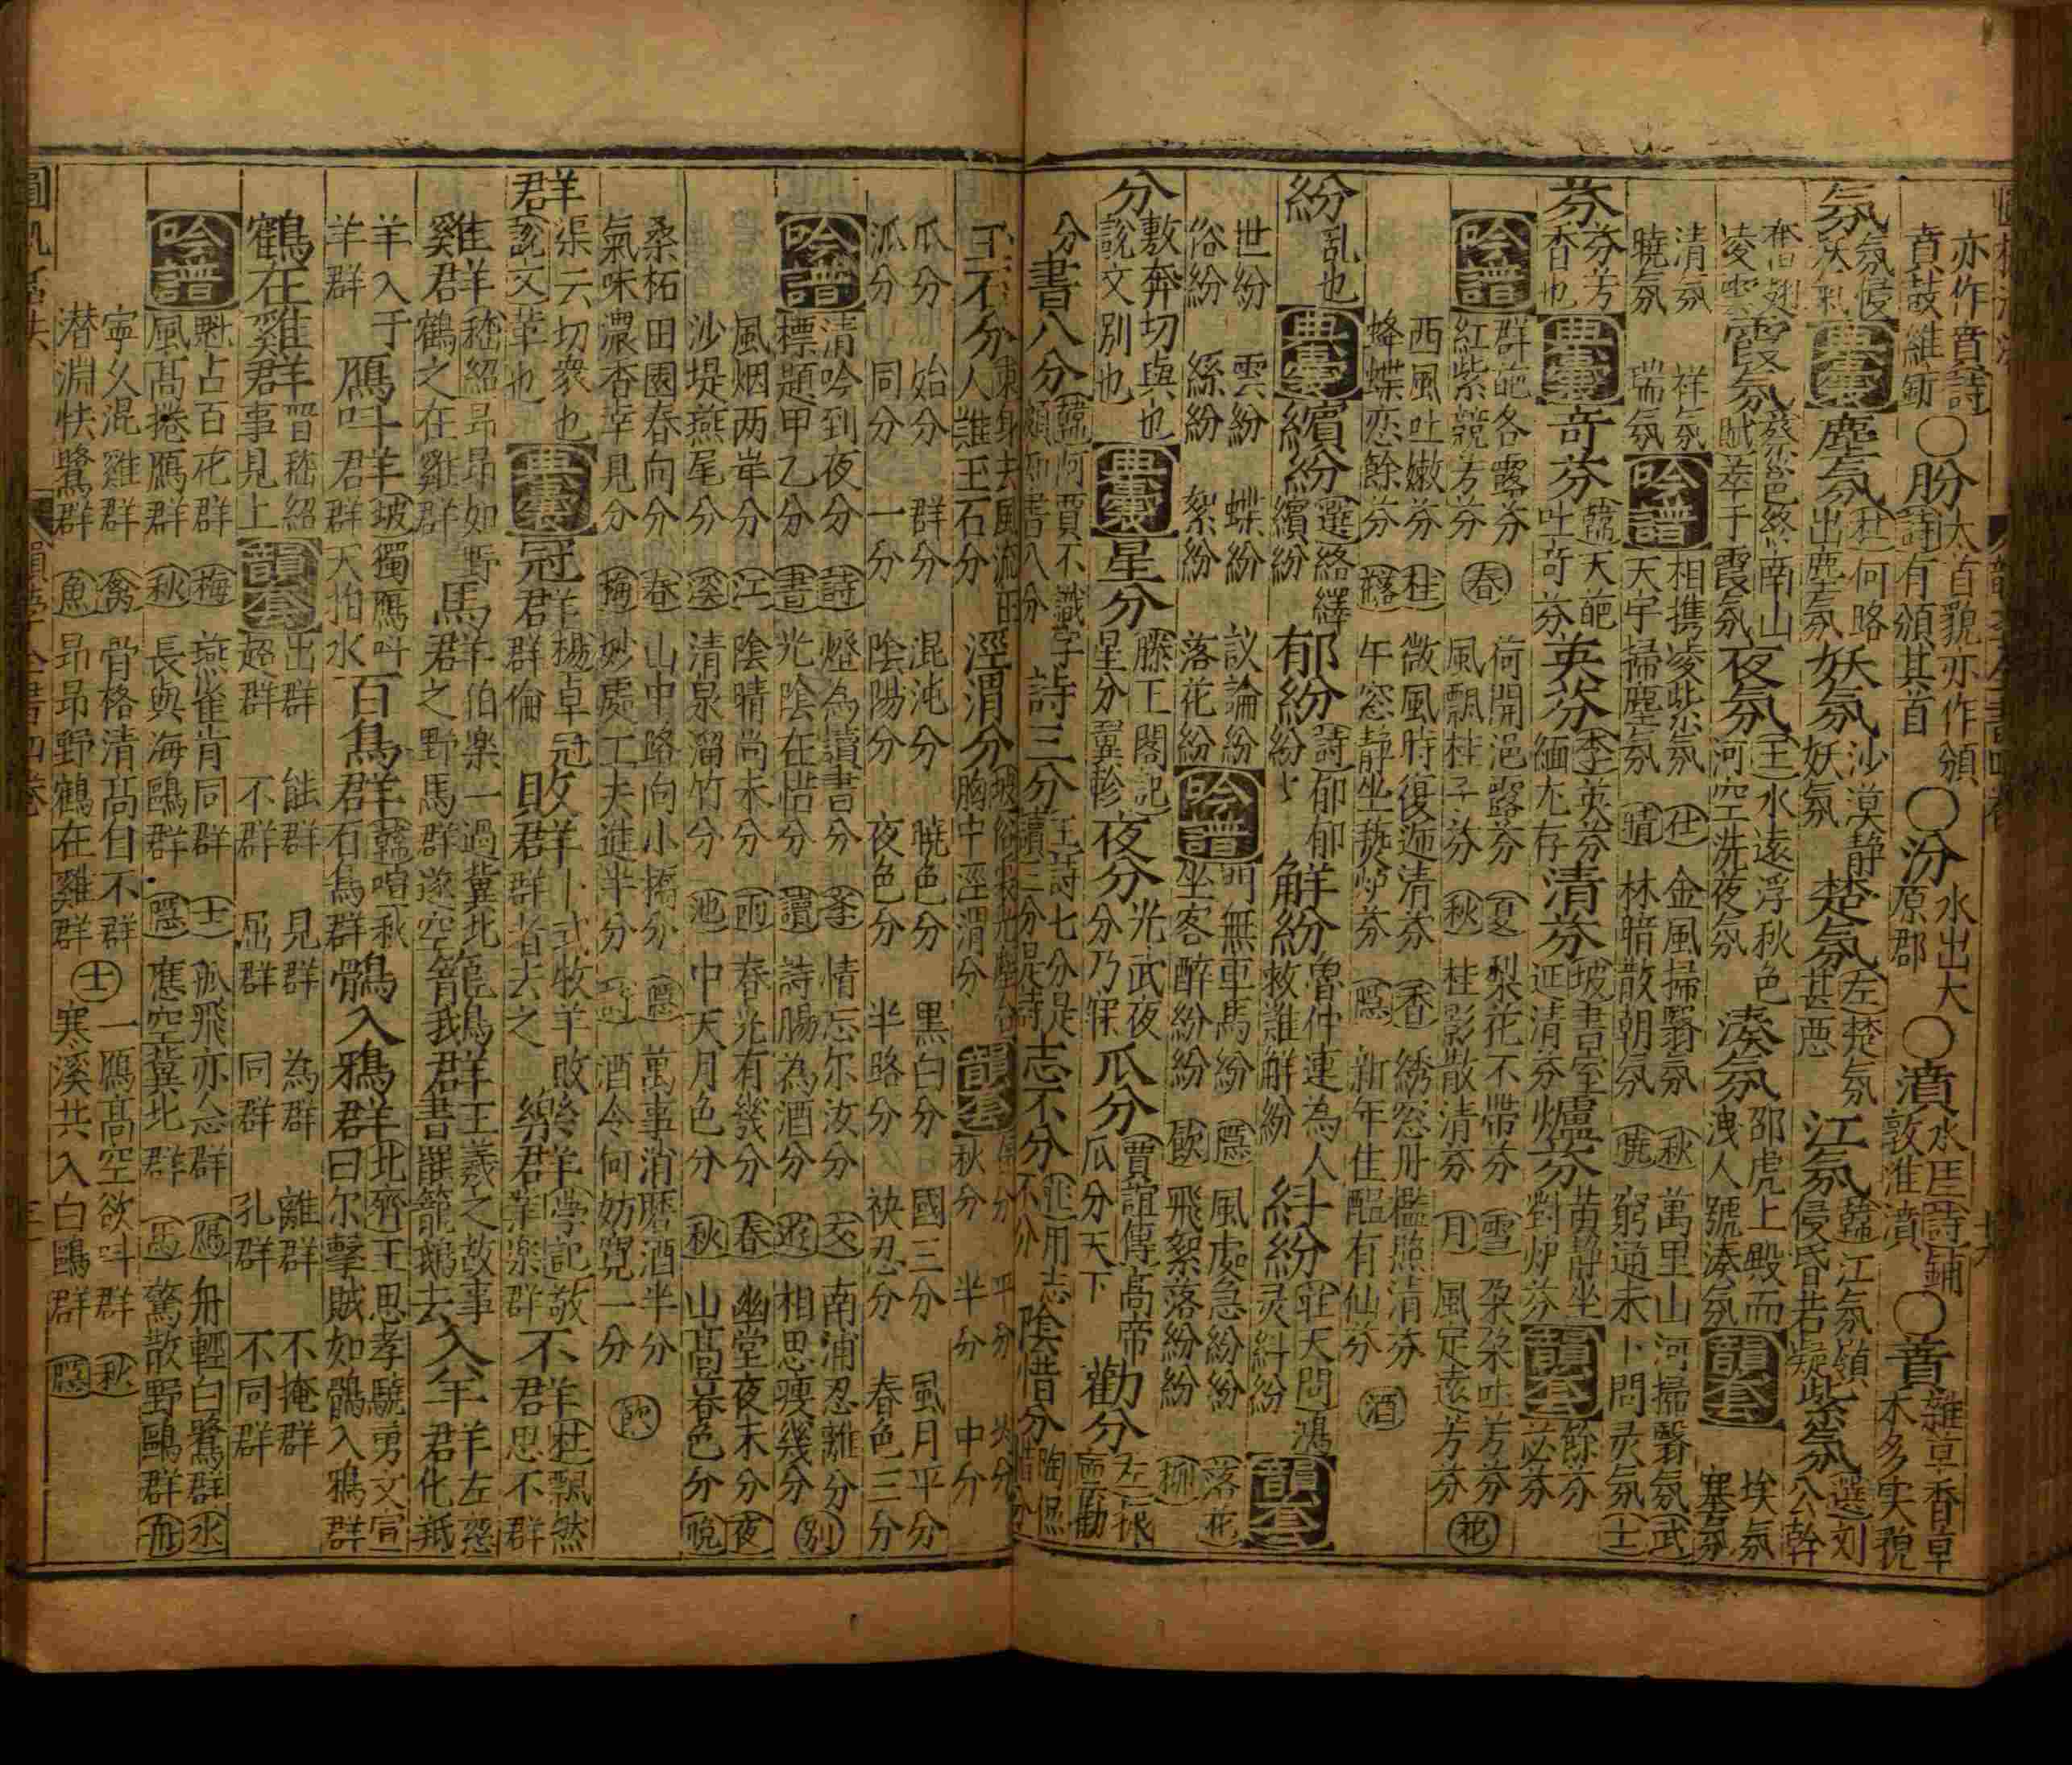 亦作蕡詩賁鼓維鏞○朌大首貌亦作頒詩有頒其首○汾水出大原郡○濆水厓詩鋪敦淮濆○蕡雜草香草木多实貌
氛氛祲妖氣 典囊 塵氛杜何略出塵氛 妖氛沙漠静妖氛 楚氛左楚氛甚惡 江氛韓江氛嶺侵昏若凝 紫氛選刘公幹
奮翅凌雲 霞氛南山霞氛 夜氛王水遠浮秋色河空洗夜氛 湊氛邵虎上殿而洩人號湊氛 韻套 埃氛 塞氛
清氛 曉氛 祥氛 瑞氛 吟譜 相携凌紫氛 仕 天宇掃塵氛 晴 金風掃翳氛 秋 林暗散朝氛 曉 萬里山河掃翳氛 武 窮通未卜問灵氛 士
芬芬芳香也 典囊 奇芬韓天葩吐奇芬 英芬李英芬緬尤存 清芬坡書室延清芬 爐芬黃静坐對炉芬 韻套 餘芬 苾芬
吟譜 群葩各露芬 紅紫競芳芬 春 荷開浥露芬 夏 風飄桂子芬 秋 梨花不帶芬 雪 桂影散清芬 月 朶朶吐芳芬 風定遠芳芬 花
西風吐嫩芬 桂 蜂蝶恋餘芬 落 微風時復迤清芬 香 午窓静坐爇炉芬 隱 綉窓丹檻照清芬 新年佳醞有仙芬 酒
紛乱也 典囊 繽紛選絡繹繽紛 郁紛詩郁郁紛紛 解紛魯仲連為人救難解紛 糾紛莊天問灵糾紛 韻套
世紛 俗紛 雲紛 絲紛 蝶紛 絮紛 議論紛 落花紛 吟譜 門無車馬紛 隱 坐客醉紛紛 飲 風處急紛紛 落花 飛絮落紛紛 柳
分敷奔切與也說文別也 典囊 星分滕王閣記星分翼軫 夜分光武夜分乃寐 瓜分賈誼傳高帝瓜分天下 勸分
分 書八分韓阿買不識字頗知書八分 詩三分王詩七分是讀三分是詩 志不分莊用志不分 陰惜分陶侃惜分
玉石分 人誰玉石分 涇渭分坡胸中涇渭分 韻套 秋分 平分 半分 中分
瓜分 派分 始分 同分 群分 一分 混沌分 陰陽分 曉色分 夜色分 黑白分 半路分 國三分 袂忍分 風月平分 春色三分
吟譜 清吟到夜分 詩 標題甲乙分 書 燈為讀書分 光陰在惜分 讀 情忘尔汝分 交 詩腸為酒分 遊 南浦忍離分 相思瘦幾分 別
風烟两岸分 江 沙堤燕尾分 溪 陰晴尚未分 雨 清泉溜竹分 池 春光有幾分 春 中天月色分 秋 幽堂夜未分 夜 山高暮色分 晚
桑柘田園春向分 春 氣味濃香幸見分 梅 山中路向小橋分 隱 妙處工夫進半分 萬事消磨酒半分 酒令何妨寬一分 飲
群渠云切衆也說文輩也 典囊 冠群楊卓冠群倫 敗群卜式牧羊敗群者去之 樂群學記敬業楽群 不群杜飄然思不群
雞群嵇紹昂昂如野鶴之在雞群 馬群伯楽一過冀北之野馬群遂空 籠鵝群王羲之故事書罷籠鵝去 入羊群左慈化羝
羊入于羊群 鴈叫群坡獨鴈叫群天拍水 百鳥群韓喧啾百鳥群 鶻入鴉群北齊王思孝驍勇文宣曰尔擊賊如鶻入鴉群
鶴在雞群晋嵇紹事見上 韻套 出群 超群 能群 不群 見群 屈群 為群 同群 離群 孔群 不掩群 不同群
吟譜 魁占百花群 梅 風高捲鴈群 秋 燕雀肯同群 士 長與海鷗群 隱 孤飛亦念群 鴈 應空冀北群 馬 舟輕白鷺群 水 驚散野鷗群 舟
寧久混雞群 禽 潜淵怏鷺群 魚 骨格清高自不群 士 昂昂野鶴在雞群 一鴈高空欲叫群 秋 寒溪共入白鷗群 隱